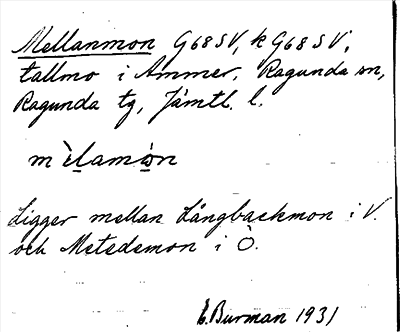 Mellanmon G68SV, k G68SV;
tallmo i Ammer, Ragunda sn,
Ragunda tg, Jämtl. l.
mèlamòn
Ligger mellan Långbackmon i V.
och Metedemon i Ö.
E. Burman 1931